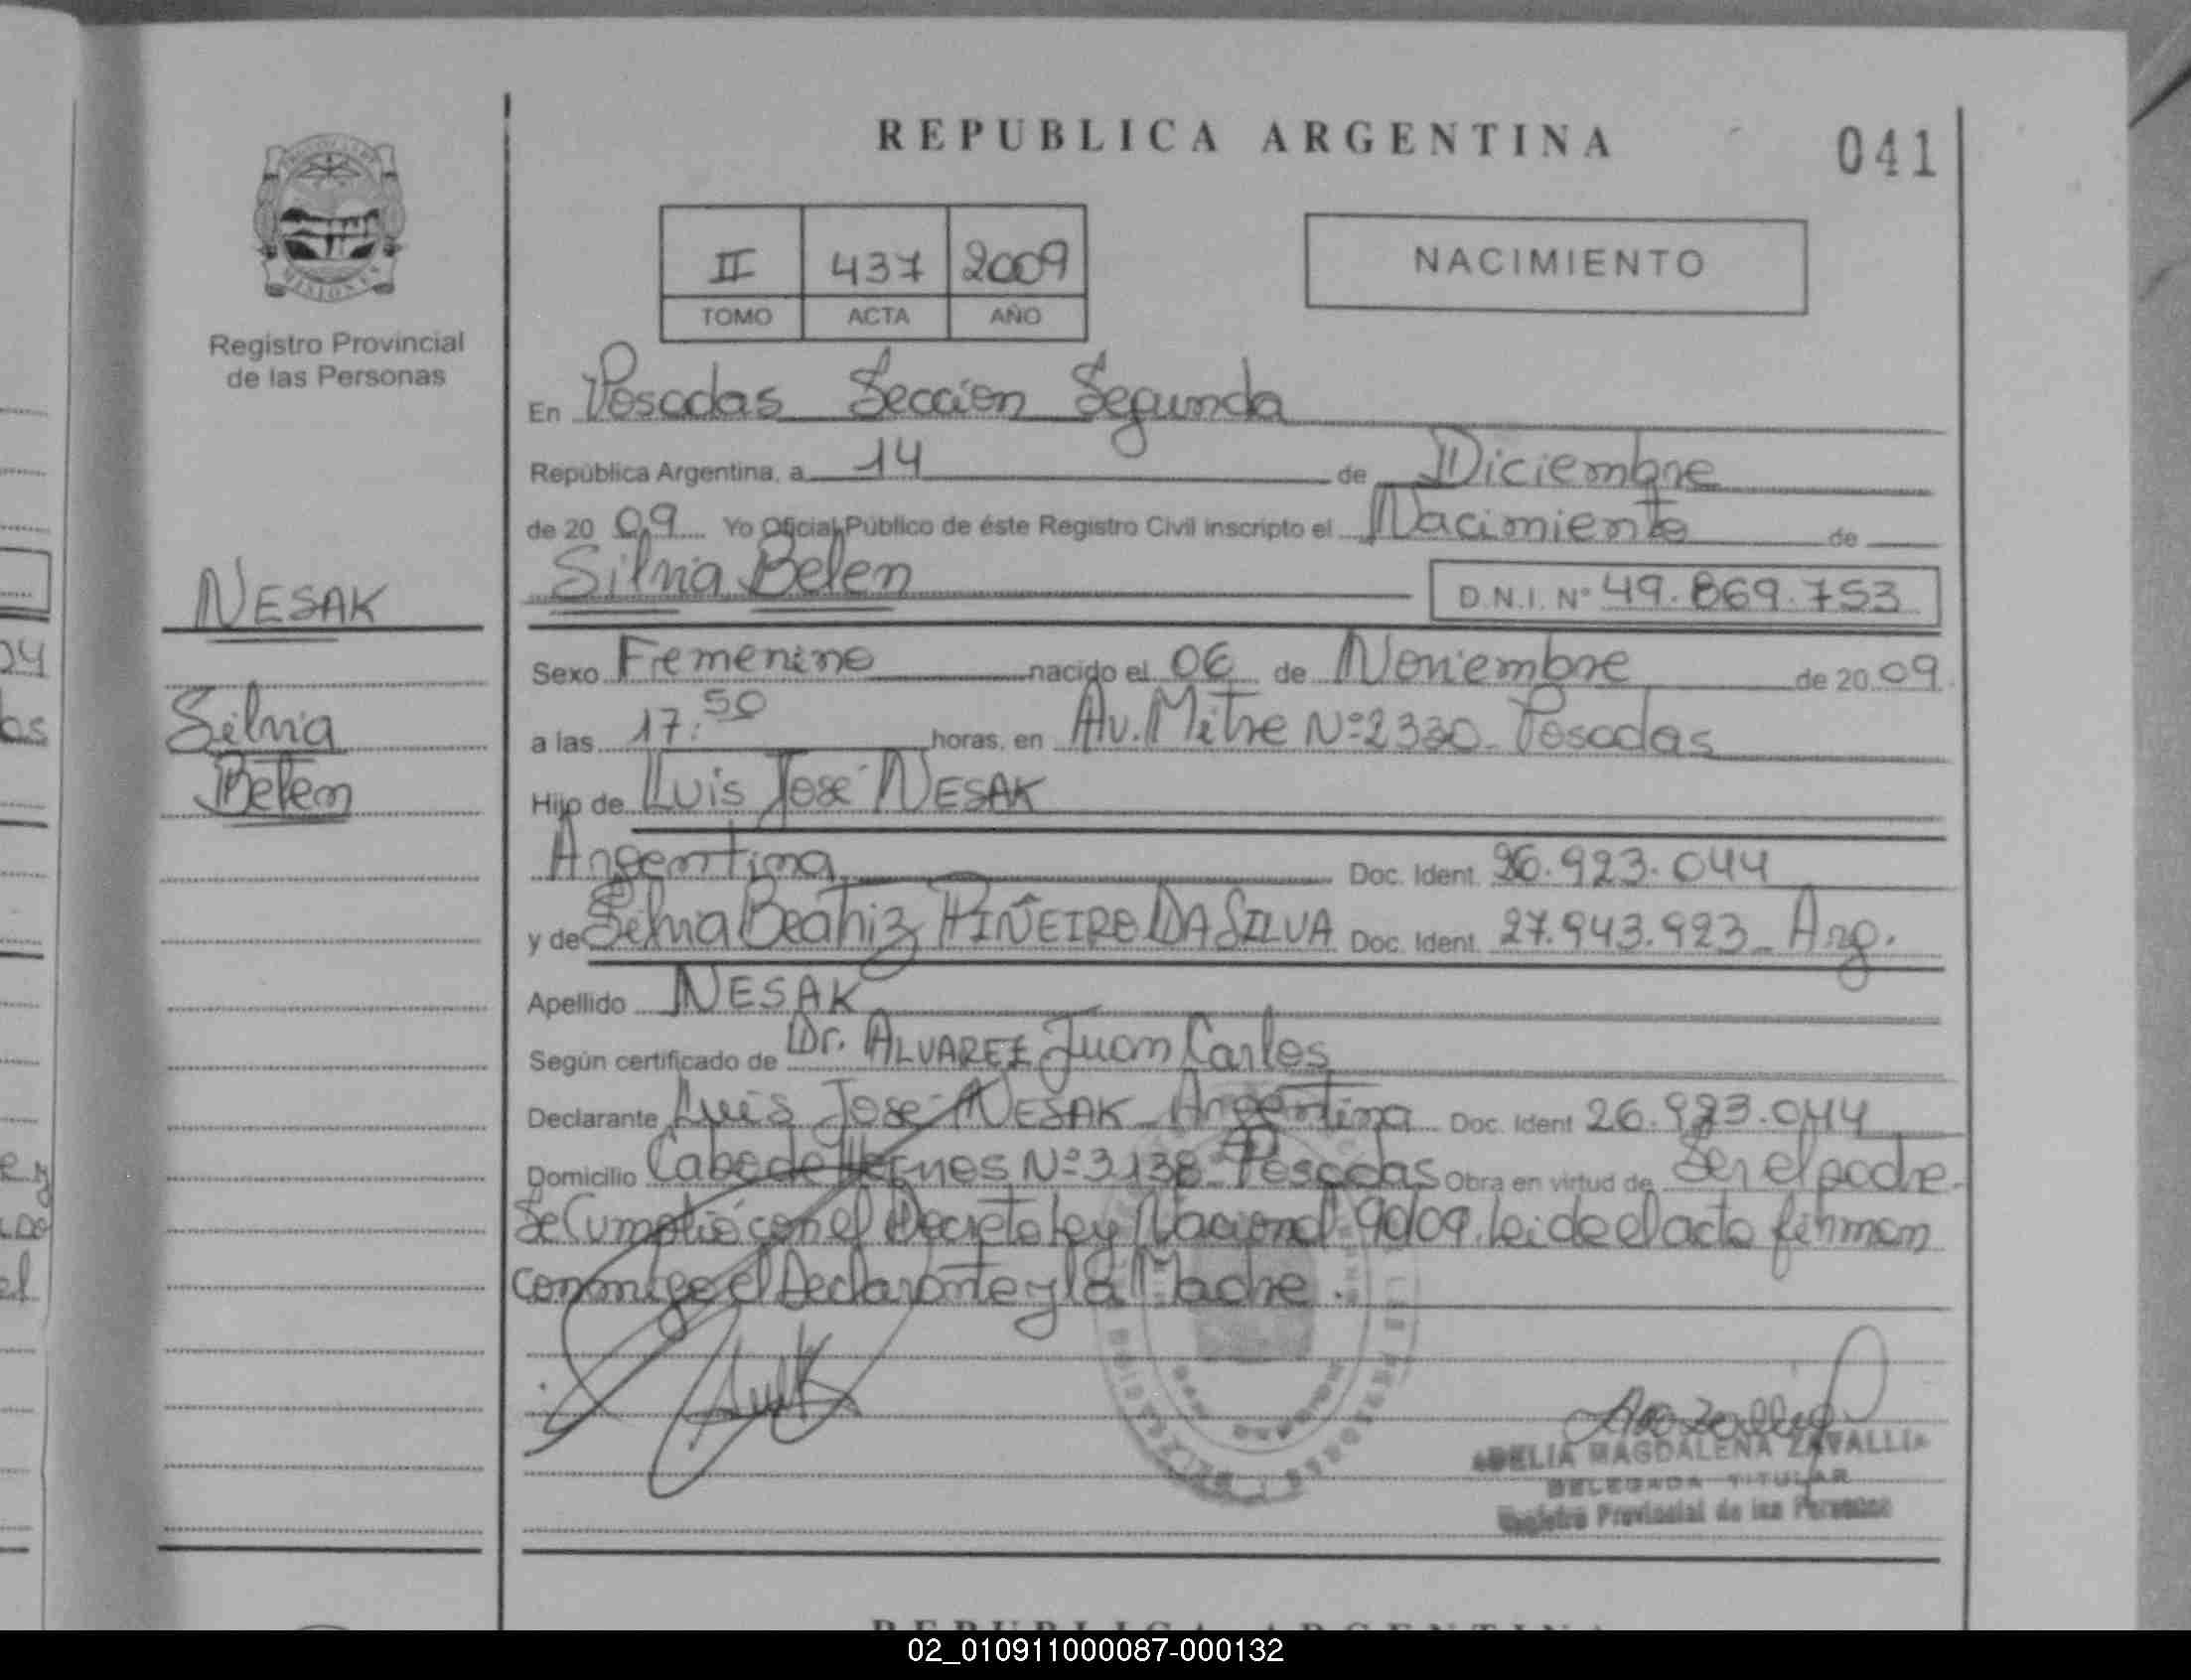 REPUBLICA ARGENTINA
041
II 437 2009
TOMO ACTA AÑO
NACIMIENTO
Registro Provincial
de las Personas
MISIONES
En Posadas Sección Segunda
República Argentina, a 14 de Diciembre
de 20 09 Yo Oficial Público de éste Registro Civil inscripto el Nacimiento de
Silvia Belen D.N.I. N° 49.869.753
NESAK
Silvia
Belen
Sexo Femenino nacido el 06 de Noviembre de 20 09
a las 17:50 horas, en Av. Mitre Nº 2330 Posadas
Hijo de Luis José NESAK
Argentina Doc. Ident. 26.923.044
y de Silvia Beatriz PIÑEIRO DA SILVA Doc. Ident. 27.943.923 Arg.
Apellido NESAK
Según certificado de Dr. ALVAREZ Juan Carlos
Declarante Luis José NESAK Argentina Doc. Ident 26.923.044
Domicilio Cabo de Hornos Nº 3138 Posadas Obra en virtud de Ser el padre.
Se Cumplió con el Decreto Ley Nacional 90/09. Leido el acta firman
conmigo el Declarante y la Madre.
ADELIA MAGDALENA ZAVALLIA
DELEGADA TITULAR
Registro Provincial de las Personas
REPUBLICA ARGENTINA
02_010911000087-000132